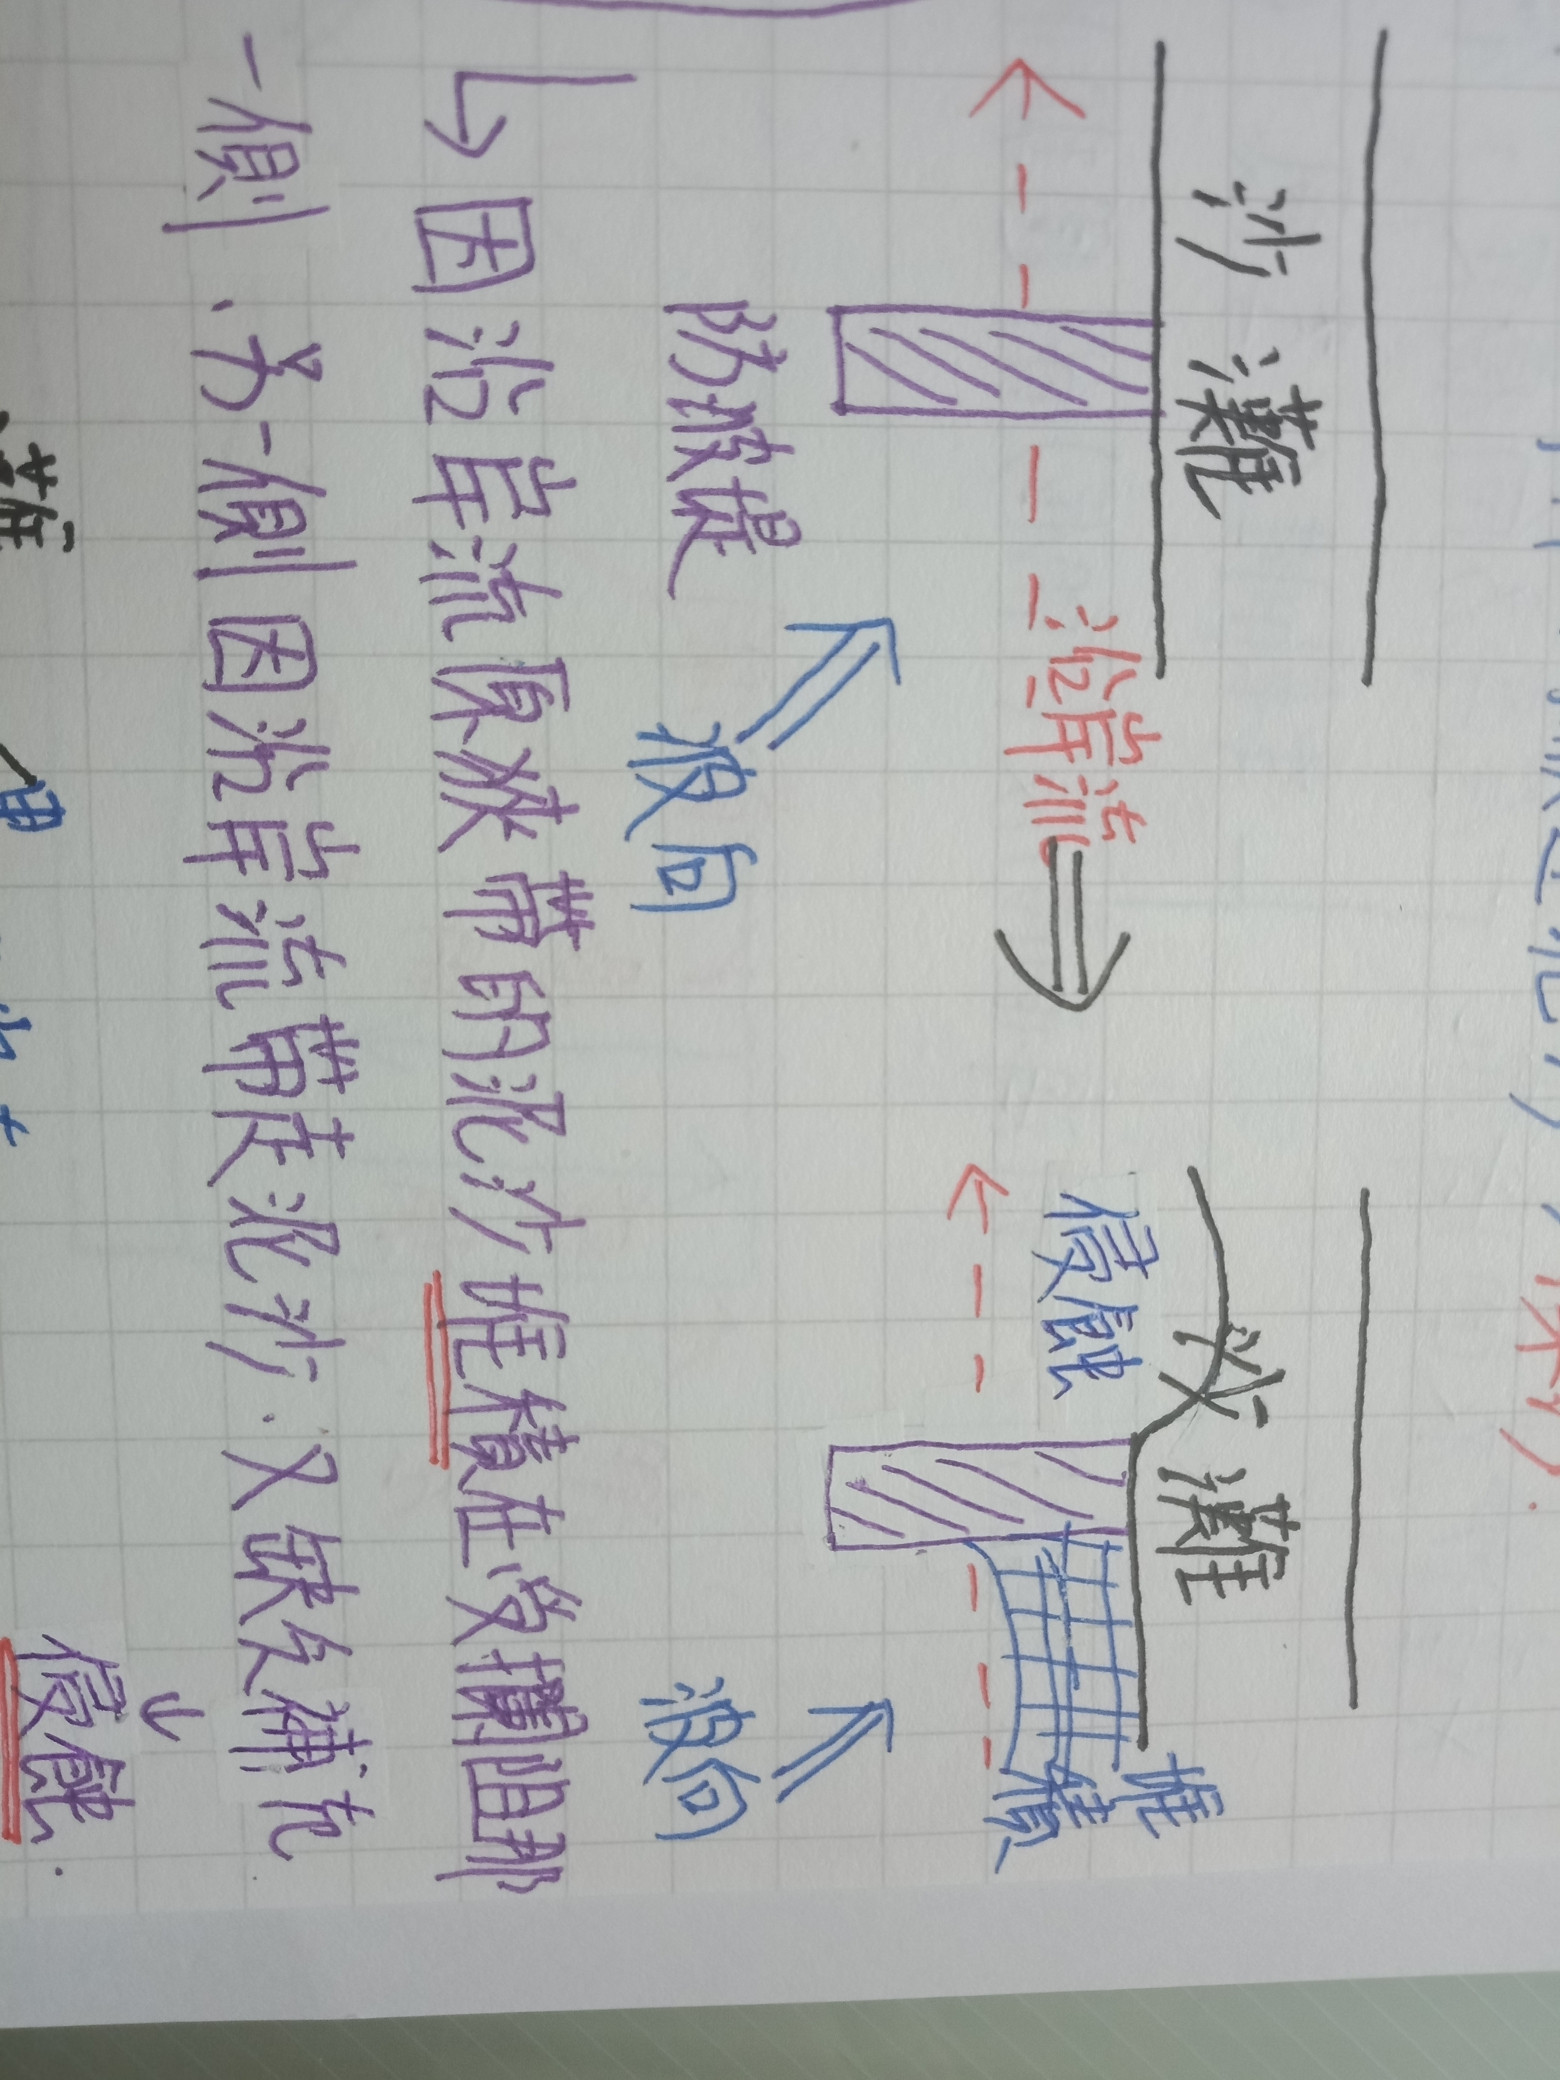 沙灘
沙灘
侵蝕
堆積
沿岸流
防波堤
波向
波向
因沿岸流原挾帶的泥沙堆積在受攔阻那
一側、另一側因沿岸流帶走泥沙.又缺乏補充
侵蝕.